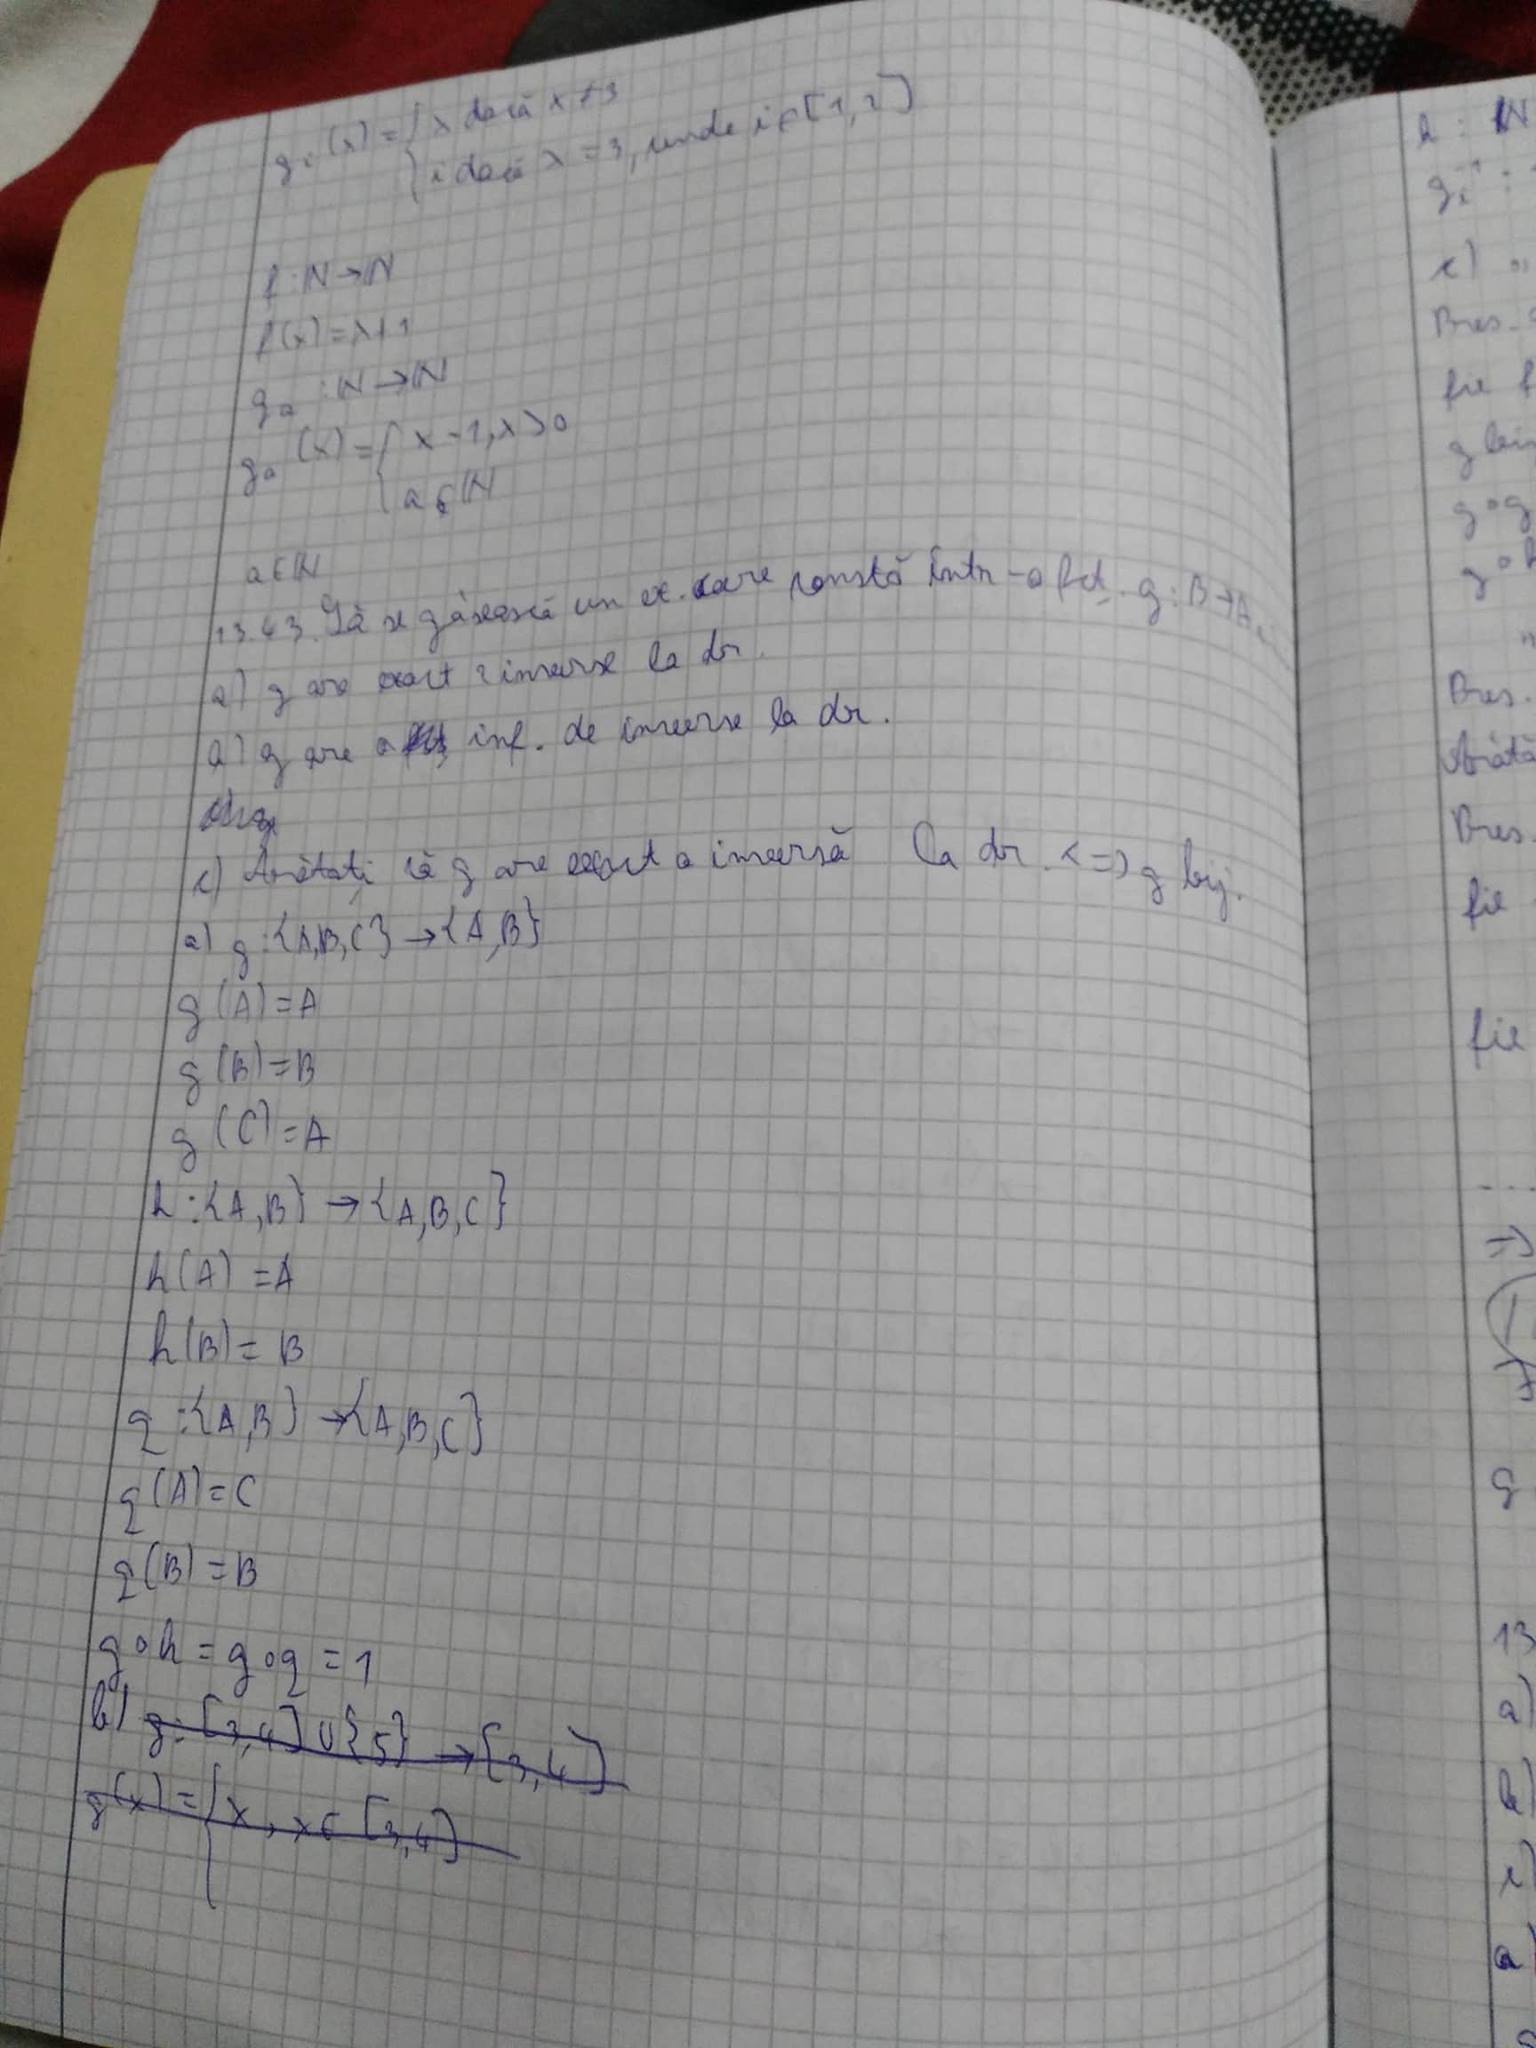 gᵢ(x) = { x dacă x ≠ 3
{ i dacă x = 3, unde i ∈ [1, 2]
f : ℕ → ℕ
f(x) = x + 1
gₐ : ℕ → ℕ
gₐ(x) = { x - 1, x > 0
{ a ∈ ℕ
a ∈ ℕ
13.43. Să se găsească un ex. care constă într-o fct. g : B → A.
a) g are exact 2 inverse la dr.
g are o inf. de inverse la dr.
c) Arătați că g are exact o inversă la dr. <=> g bij.
a) g : {A, B, C} → {A, B}
g(A) = A
g(B) = B
g(C) = A
h : {A, B} → {A, B, C}
h(A) = A
h(B) = B
q : {A, B} → {A, B, C}
q(A) = C
q(B) = B
g ∘ h = g ∘ q = 1
b) g : [3, 4] ∪ {5} → [3, 4]
g(x) = { x, x ∈ [3, 4]
h : ℕ
gᵢ⁻¹ :
c)
Pres.
fie f
g bij
g ∘ g
g ∘ h
Pres.
Arăta
Pres.
fie
fie
=>
g
13
a)
b)
c)
a)